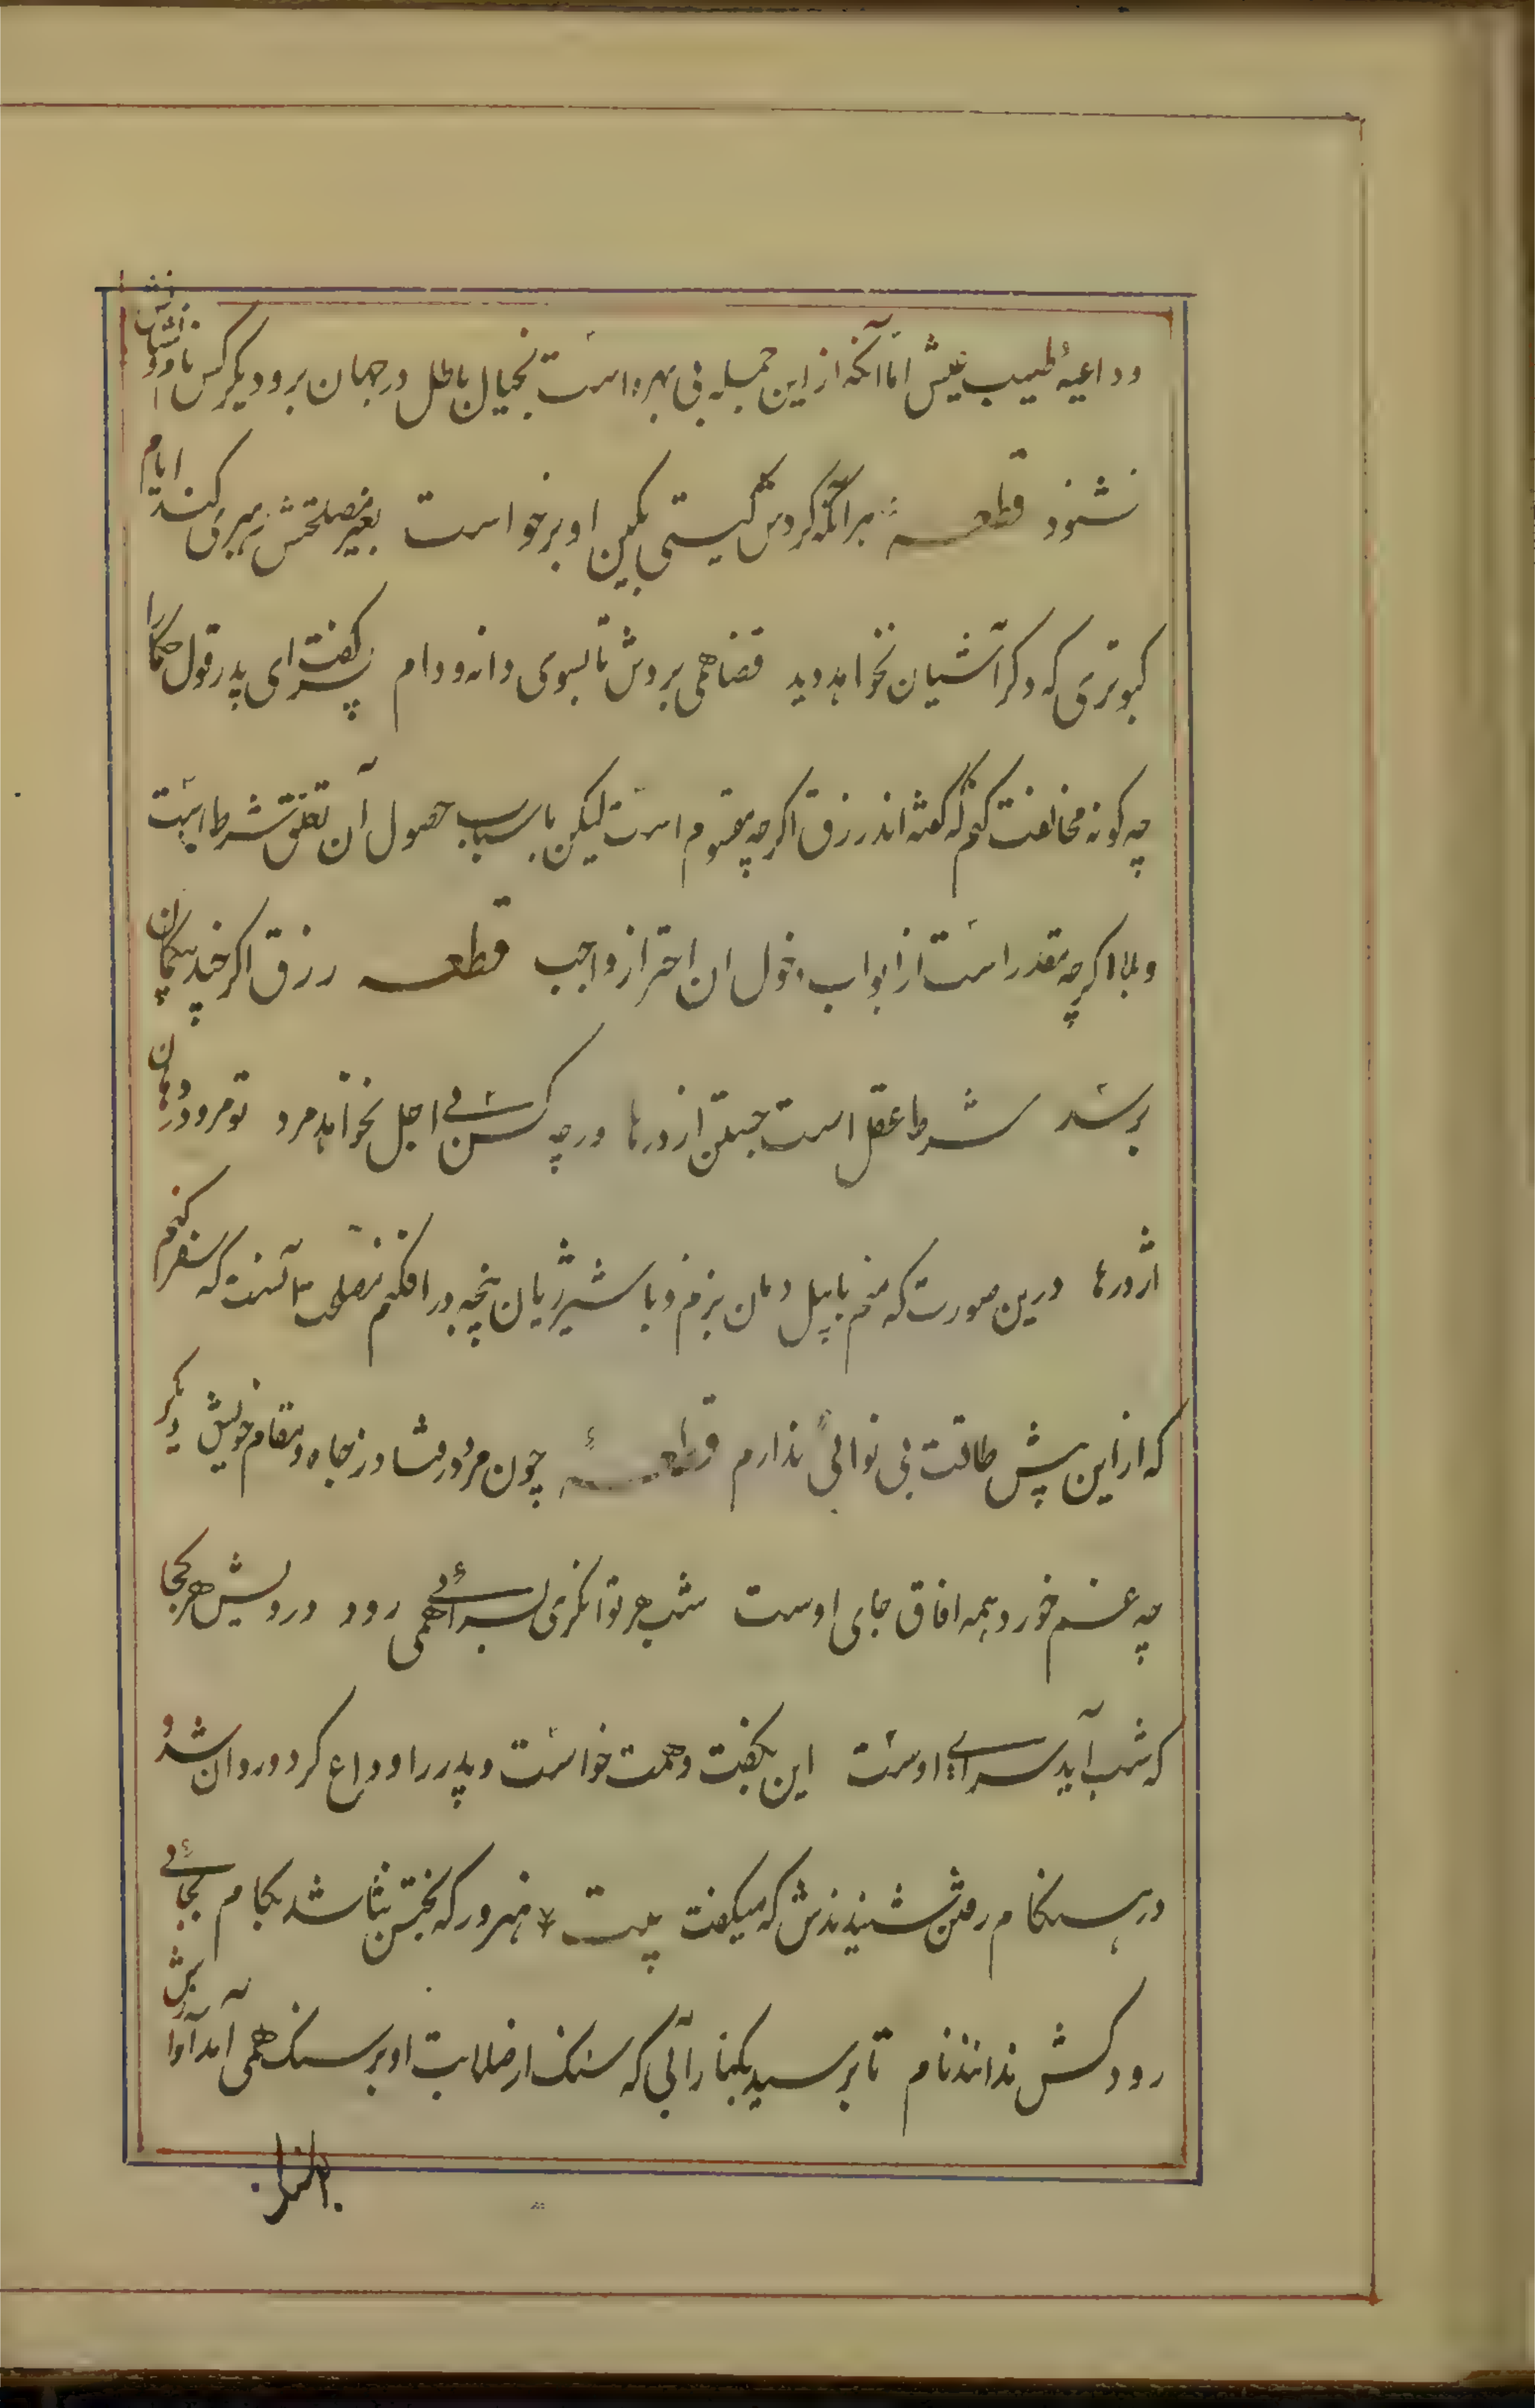 و داعیهٔ طیب عیش اما آنکه از این جمله بی بهره است بخیال باطل در جهان برود دیگر کس نام و نشانش
نشنود قطعه هر آنکه گردش گیتی بکین او برخواست بغیر مصلحتش رهبری کند ایام
کبوتری که دکر آشیان نخواهد دید قضا همی بردش تا بسوی دانه و دام پسر گفت ای پدر قول حکما را
چه کونه مخالفت کنم که گفته اند رزق اگرچه مقسوم است لیکن باسباب حصول آن تعلق شرط است
و بلا اگرچه مقدر است از ابواب دخول ان احتراز واجب قطعه رزق اگر چند بیکمان
برسد شرط عقل است جستن از درها ورچه کس بی اجل نخواهد مرد تو مرو در دهان
اژدرها درین صورت که منم با پیل دمان بزنم و با شیر ژیان پنجه در افکنم مصلحت آنست که سفر کنم
که از این بیش طاقت بی نوائی ندارم قطعهٔ چون مرد در فتاد ز جاه و مقام خویش دیگر
چه غم خورد همه افاق جای اوست شب هر توانگری بسرائی همی رود درویش هر کجا
که شب آید سرای اوست این بگفت و همت خواست و پدر را وداع کرد و روان شد و
در هنگام رفتن شنیدندش که میگفت بیت هنرور که بختش نباشد بکام بجائی
رود کش ندانند نام تا برسید بکنار آبی که سنگ از صلابت او بر سنگ همی آمد آوازش